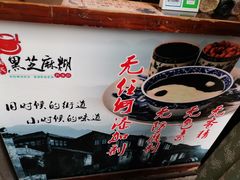 黑芝麻糊
旧时候的街道
小时候的味道
无任何添加剂
无防腐剂
无色素
无香精